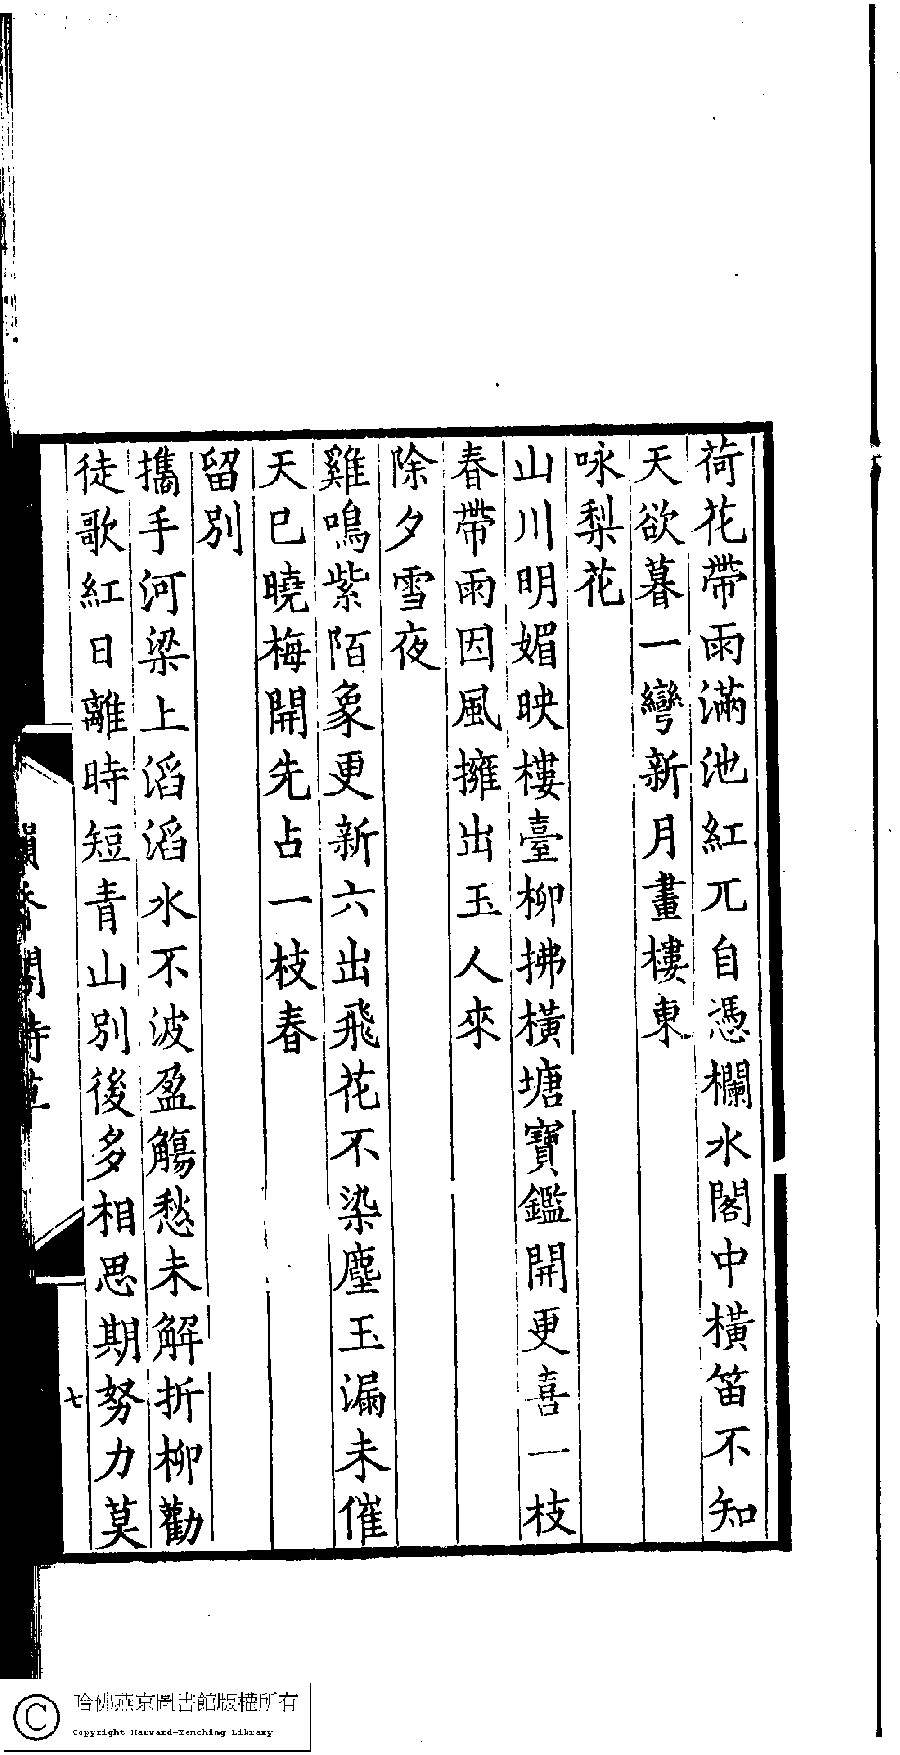 荷花帶雨滿池紅兀自憑欄水閣中橫笛不知
天欲暮一彎新月畫樓東
咏梨花
山川明媚映樓臺柳拂橫塘寶鑑開更喜一枝
春帶雨因風擁出玉人來
除夕雪夜
雞鳴紫陌象更新六出飛花不染塵玉漏未催
天已曉梅開先占一枝春
留別
攜手河梁上滔滔水不波盈觴愁未解折柳勸
徒歌紅日離時短青山別後多相思期努力莫
七
哈佛燕京圖書館版權所有
Copyright Harvard-Yenching Library